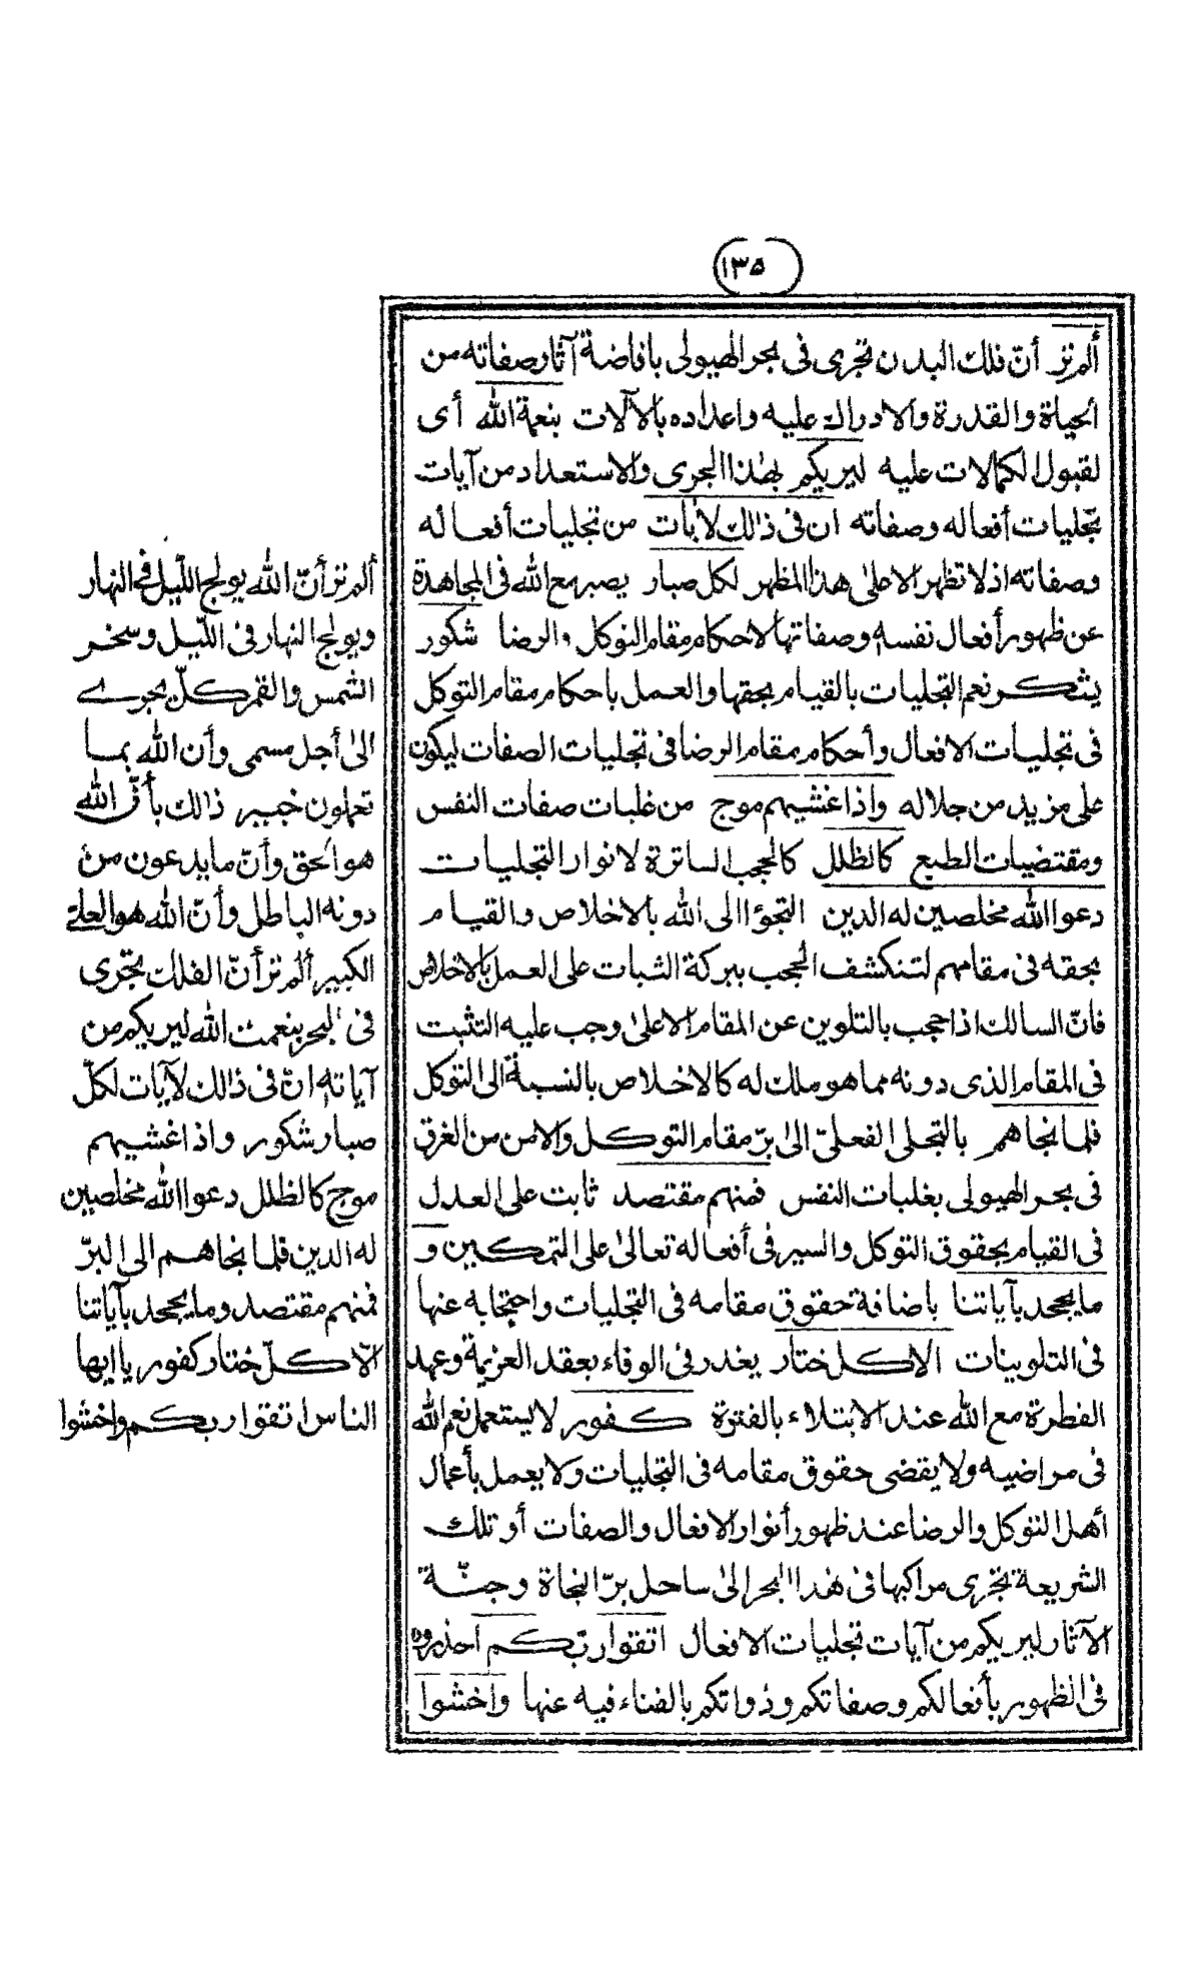 (١٣٥)
ألم تر أنّ فلك البدن تجرى فى بحر الهيولى بافاضة آثار صفاته من
الحياة والقدرة والادراك عليه واعداده بالآلات بنعمة الله أى
لقبول الكمالات عليه ليريكم بهذا الجرى والاستعداد من آيات
تجليات أفعاله وصفاته ان فى ذلك لآيات من تجليات أفعاله
وصفاته اذ لا تظهر الا على هذا المظهر لكل صبار يصبر مع الله فى المجاهدة
عن ظهور أفعال نفسه وصفاتها لاحكام مقام التوكل والرضا شكور
يشكر نعم التجليات بالقيام بحقها والعمل باحكام مقام التوكل
فى تجليات الافعال وأحكام مقام الرضا فى تجليات الصفات ليكون
على مزيد من جلاله واذا غشيهم موج من غلبات صفات النفس
ومقتضيات الطبع كالظلل كالحجب الساترة لانوار التجليات
دعوا الله مخلصين له الدين التجؤا الى الله بالاخلاص والقيام
بحقه فى مقامهم لتنكشف الحجب ببركة الثبات على العمل بالاخلاص
فانّ السالك اذا حجب بالتلوين عن المقام الاعلى وجب عليه التثبت
فى المقام الذى دونه مما هو ملك له كالاخلاص بالنسبة الى التوكل
فلما نجاهم بالتجلى الفعلىّ الى برّ مقام التوكل والامن من الغرق
فى بحر الهيولى بغلبات النفس فمنهم مقتصد ثابت على العدل
فى القيام بحقوق التوكل والسير فى أفعاله تعالى على التمكين و
ما يجحد بآياتنا باضافة حقوق مقامه فى التجليات واحتجابه عنها
فى التلوينات الا كل ختار يغدر فى الوفاء بعقد العزيمة وعهد
الفطرة مع الله عند الابتلاء بالفترة كفور لا يستعمل نعم الله
فى مراضيه ولا يقضى حقوق مقامه فى التجليات ولا يعمل بأعمال
أهل التوكل والرضا عند ظهور أنوار الافعال والصفات أو تلك
الشريعة تجرى مراكبها فى هذا البحر الى ساحل برّ النجاة وجنّة
الآثار ليريكم من آيات تجليات الافعال اتقوا ربّكم احذروه
فى الظهور بأفعالكم وصفاتكم وذواتكم بالفناء فيه عنها واخشوا
ألم تر أنّ الله يولج الليل فى النهار
ويولج النهار فى الليل وسخر
الشمس والقمر كلّ يجرى
الى أجل مسمى وأن الله بما
تعملون خبير ذلك بأنّ الله
هو الحق وأنّ ما يدعون من
دونه الباطل وأنّ الله هو العلىّ
الكبير ألم تر أنّ الفلك تجرى
فى البحر بنعمت الله ليريكم من
آياته انّ فى ذلك لآيات لكلّ
صبار شكور واذا غشيهم
موج كالظلل دعوا الله مخلصين
له الدين فلما نجاهم الى البرّ
فمنهم مقتصد وما يجحد بآياتنا
الّا كلّ ختار كفور يا ايها
الناس اتقوا ربكم واخشوا